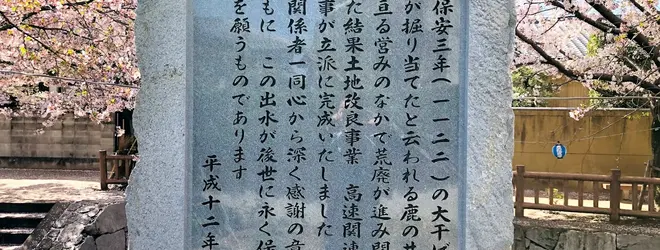 保安三年(一一二二)の大干ば
が掘り当てたと云われる鹿の井
亘る営みのなかで荒廃が進み関
た結果土地改良事業 高速関連
事が立派に完成いたしました
関係者一同心から深く感謝の意
もに この出水が後世に永く保
を願うものであります
平成十二年